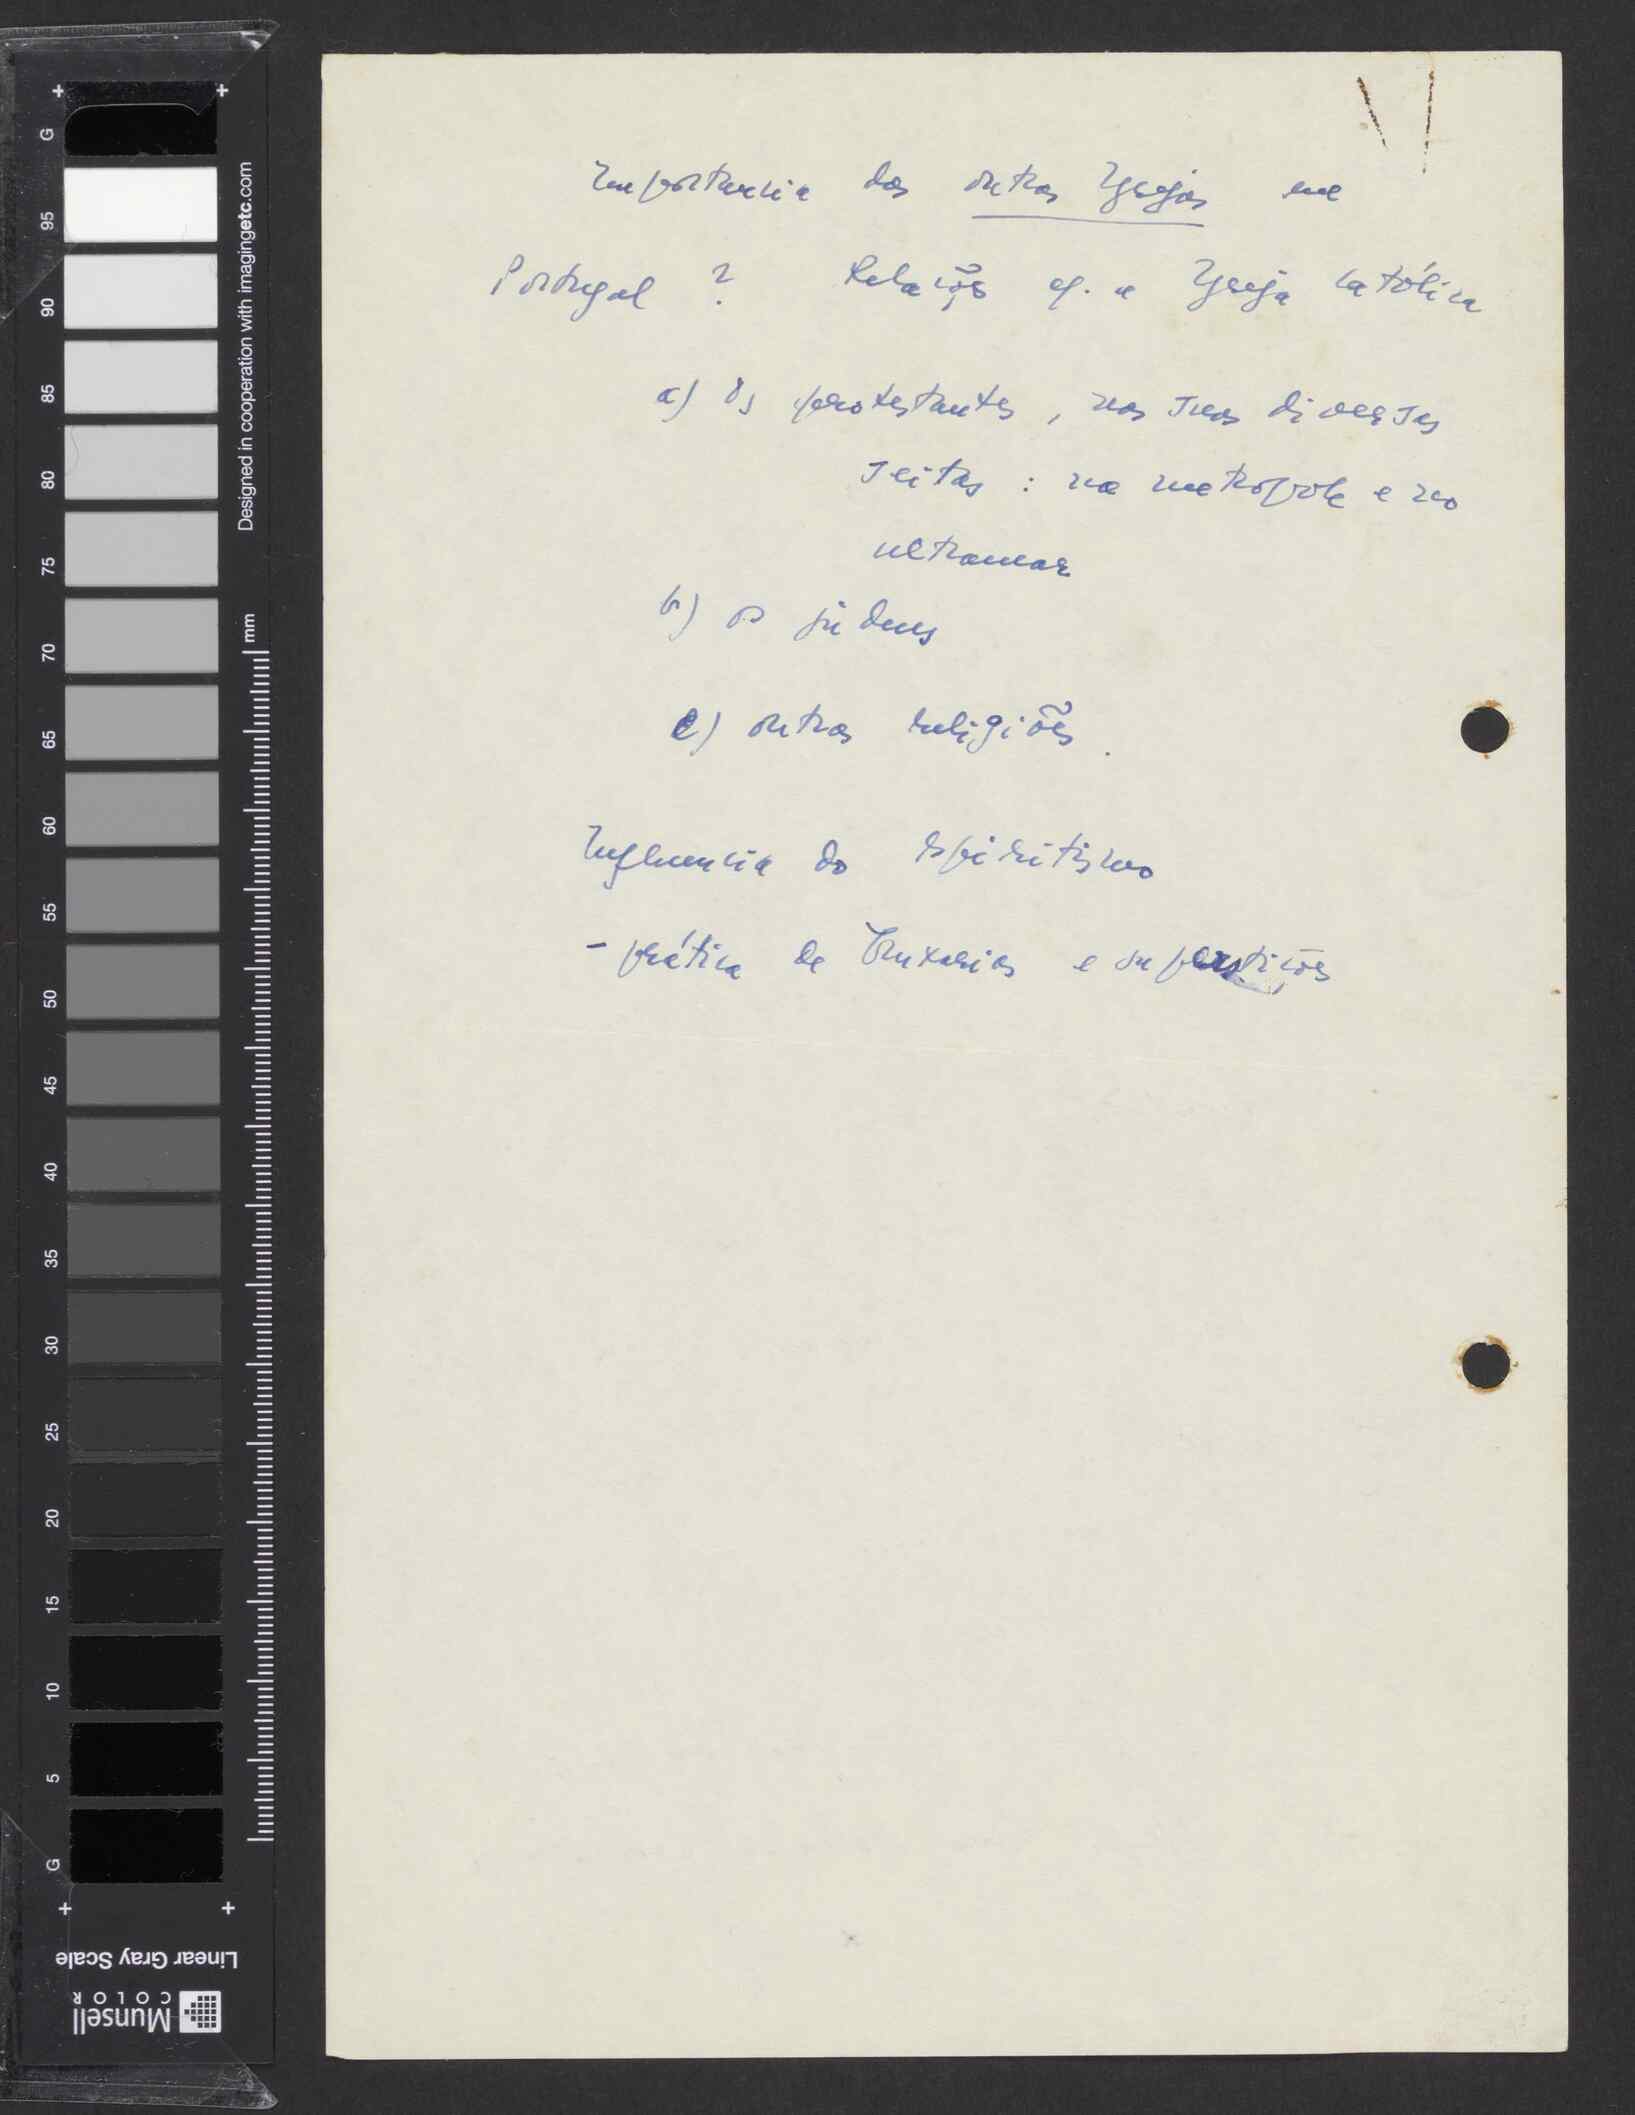 Importancia das outras Igrejas em
Portugal ? Relações c/. a Igreja católica
a) Os protestantes, nas suas diversas
seitas : na metropole e no
ultramar
b) os judeus
c) outras religiões.
Influencia do espiritismo
- prática de bruxarias e superstições
Designed in cooperation with imagingetc.com
mm
G
95
90
85
80
75
70
65
60
55
50
45
40
35
30
25
20
15
10
5
G
Linear Gray Scale
Munsell
COLOR